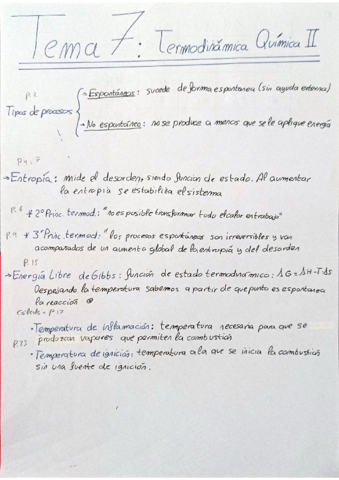 Tema 7: Termodinámica Química II
p.2
Espontáneos: sucede de forma espontanea (sin ayuda externa)
Tipos de procesos
No espontáneo: no se produce a menos que se le aplique energía
p.4, 7
→Entropía: mide el desorden, siendo funcion de estado. Al aumentar
la entropia se estabiliza el sistema
p.8 * 2º Princ. termod: "no es posible transformar todo el calor en trabajo"
p.9 * 3º Princ. termod: "los procesos espontáneos son irreversibles y van
acompañados de un aumento global de la entropia y del desorden
p.15
→Energía Libre de Gibbs: función de estado termodinámico: ΔG = ΔH - T·ΔS
Despejando la temperatura sabemos a partir de que punto es espontanea
la reacción
p.17
• Temperatura de inflamación: temperatura necesaria para que se
p.23 produzcan vapores que permiten la combustión
• Temperatura de ignición: temperatura a la que se inicia la combustión
sin una fuente de ignición.